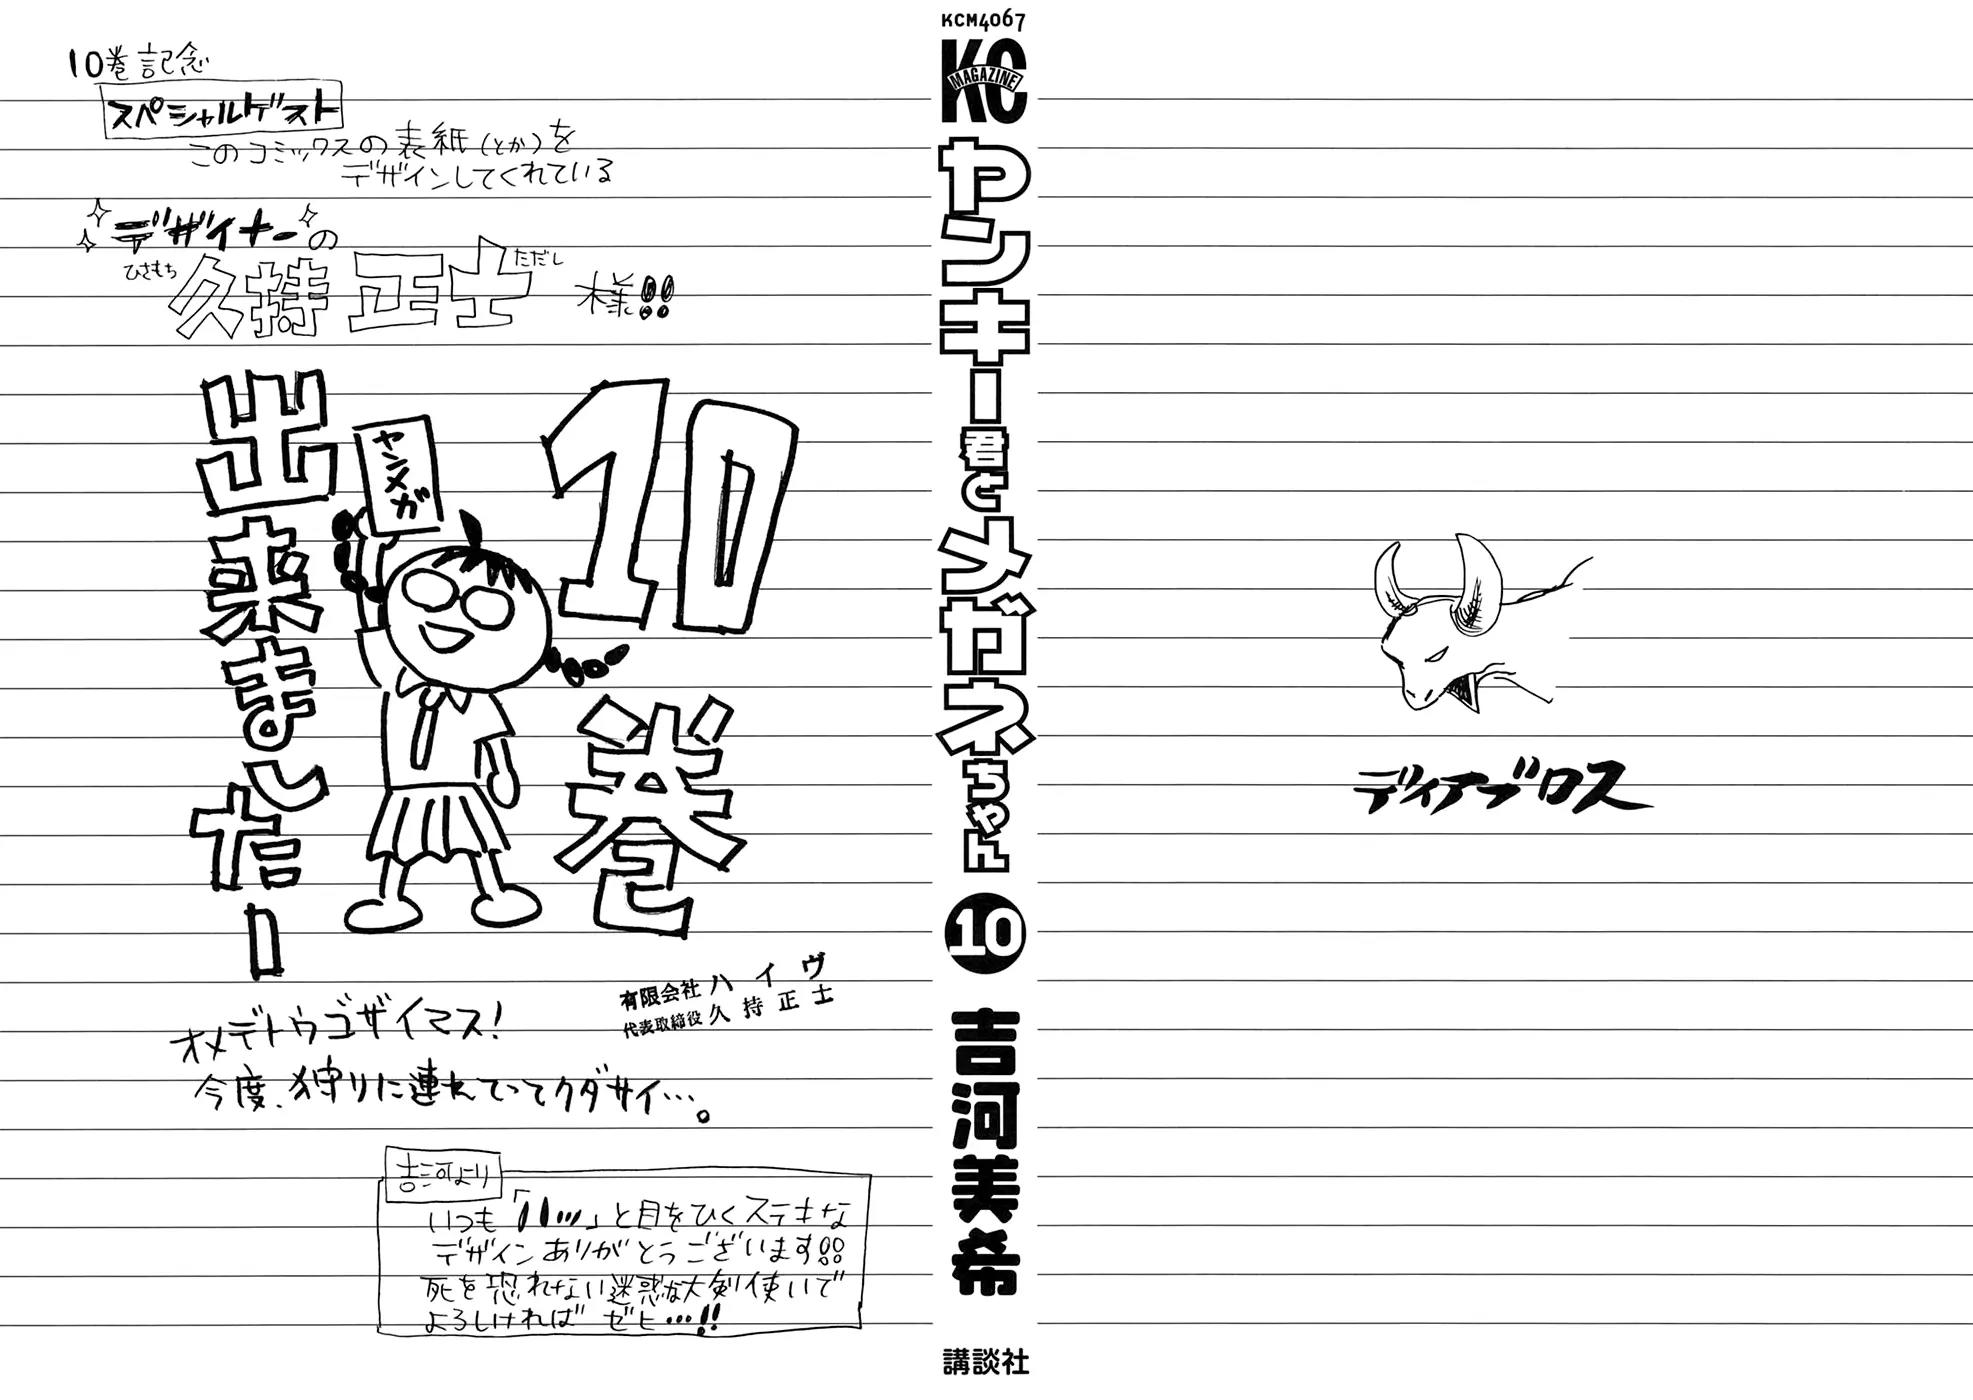 10巻記念
スペシャルゲスト
このコミックスの表紙(とか)を
デザインしてくれている
デザイナーの
ひさもち
ただし
久持正士 様!!
10巻
出来ましたー
ヤンメガ
有限会社 ハイヴ
代表取締役 久持正士
オメデトウゴザイマス!
今度、狩りに連れてってクダサイ…。
吉河より
いつも「ハッ」と目をひくステキな
デザインありがとうございます!!
死を恐れない迷惑な大剣使いで
よろしければ ゼヒ…!!
KCM4067
KC
MAGAZINE
ヤンキー君とメガネちゃん
10
吉河美希
講談社
ディアブロス